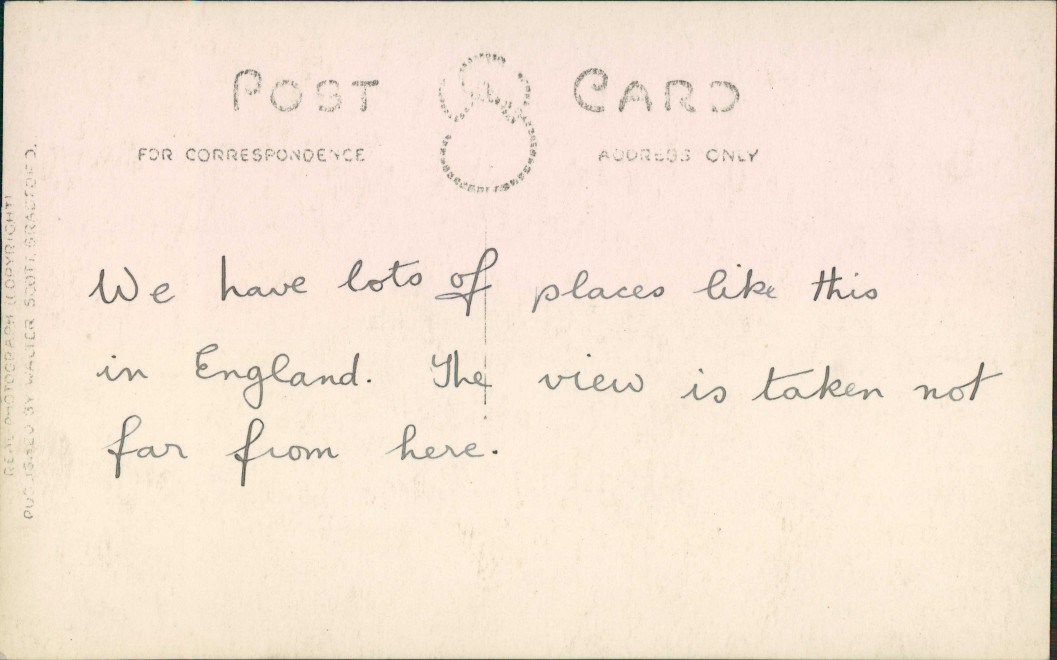 POST CARD
FOR CORRESPONDENCE
ADDRESS ONLY
We have lots of places like this
in England. The view is taken not
far from here.
REAL PHOTOGRAPH (COPYRIGHT)
PUBLISHED BY WALTER SCOTT, BRADFORD.